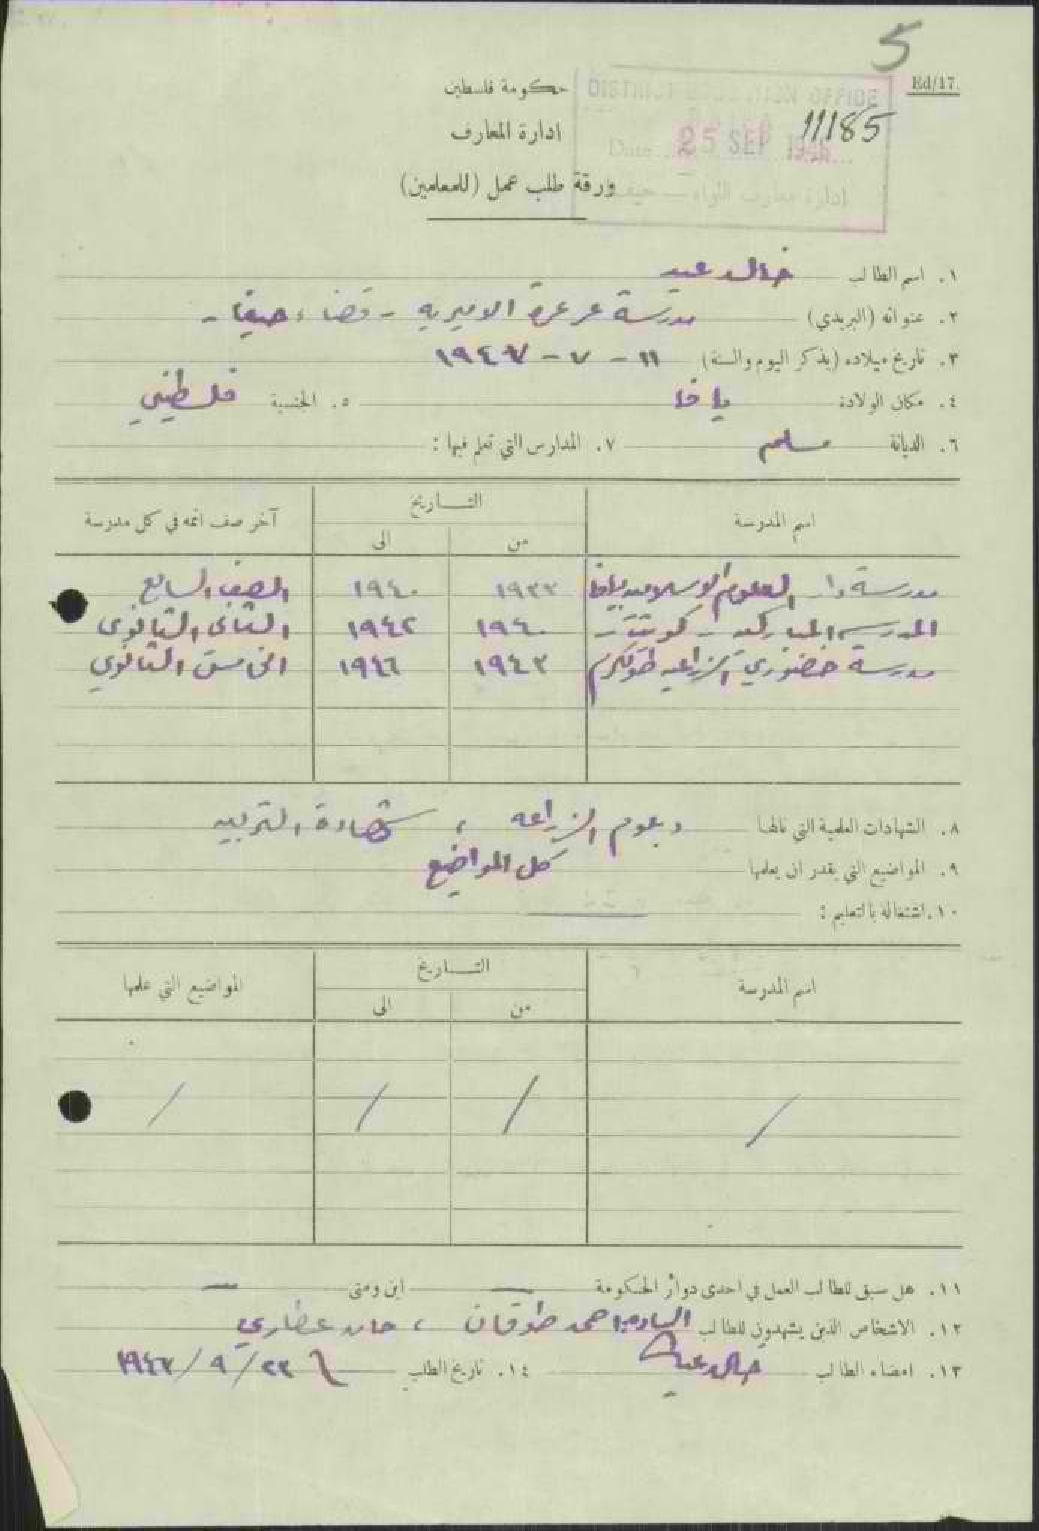 5
Ed/17.
11185
25 SEP 1946
Date
ادارة معارف اللواء — حيفا
حكومة فلسطين
ادارة المعارف
ورقة طلب عمل (للمعلمين)
١. اسم الطالب خالد عيد
٢. عنوانه (البريدي) مدرسة عرعرة الاميريه - قضاء حيفا -
٣. تاريخ ميلاده (يذكر اليوم والسنة) ١١ - ٧ -
٤. مكان الولادة يافا ٥. الجنسية فلسطيني
٦. الديانة مسلم ٧. المدارس التي تعلم فيها :
اسم المدرسة التـــاريخ آخر صف اتمه في كل مدرسة
من الى
مدرسة دار العلوم الاسلاميه بيافا ١٩٣٣ ١٩٤٠ الصف السابع
المدرسه المباركيه - كويت - ١٩٤٠ ١٩٤٢ الثاني الثانوي
مدرسة خضوري الزراعيه طولكرم ١٩٤٣ ١٩٤٦ الخامس الثانوي
٨. الشهادات العلمية التي نالها دبلوم الزراعه ، شهادة التربيه
٩. المواضيع التي يقدر ان يعلمها كل المواضيع
١٠. اشتغاله بالتعليم :
اسم المدرسة التـــاريخ المواضيع التي علمها
من الى
/ / / /
١١. هل سبق للطالب العمل في احدى دوائر الحكومة — اين ومتى —
١٢. الاشخاص الذين يشهدون للطالب احمد طوقان ، حامد عطاري
١٣. امضاء الطالب خالد عيد ١٤. تاريخ الطلب ٢٣/٩/